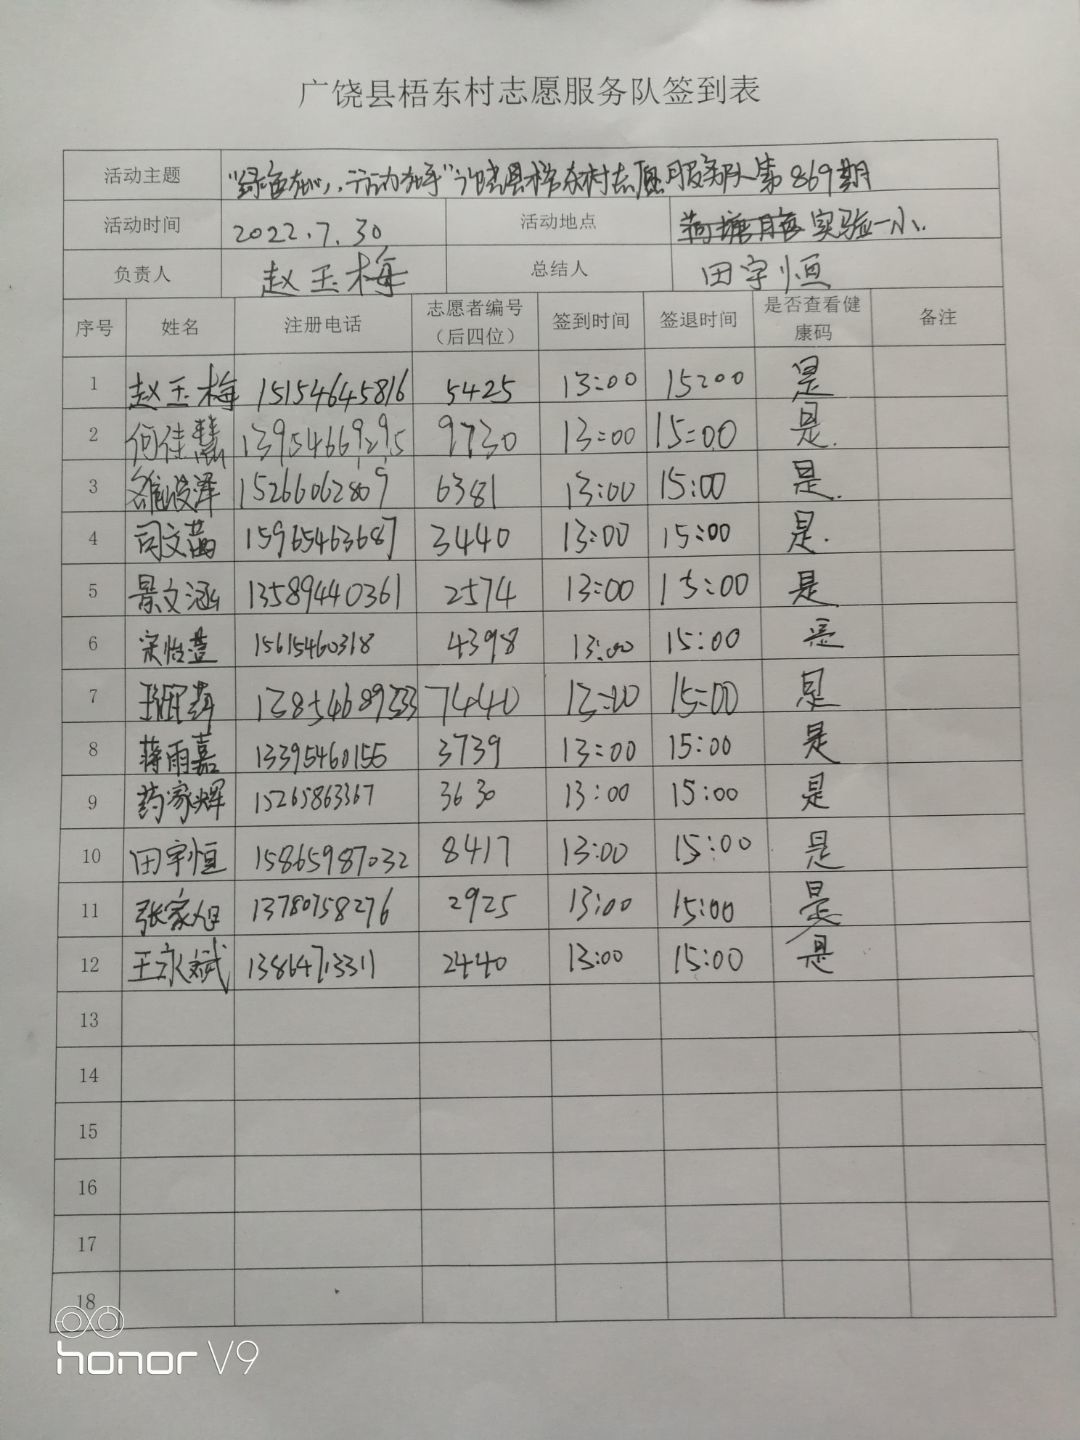 广饶县梧东村志愿服务队签到表
活动主题 广饶县梧东村志愿服务队第869期
活动时间 2022.7.30 活动地点 实验一小.
负责人 赵玉梅 总结人 田宇恒
序号 姓名 注册电话 志愿者编号（后四位） 签到时间 签退时间 是否查看健康码 备注
1 赵玉梅 15154645816 5425 13:00 15:00 是
2 何佳慧 13954669295 9730 13:00 15:00 是.
3 15266062809 6381 13:00 15:00 是.
4 司文茜 15965463687 3440 13:00 15:00 是.
5 景文涵 13589440361 2574 13:00 15:00 是
6 宋怡萱 15615460318 4398 13:00 15:00 是
7 13854689333 7440 13:00 15:00 是
8 蒋雨嘉 13395460155 3739 13:00 15:00 是
9 药家辉 15265863367 3630 13:00 15:00 是
10 田宇恒 15865987032 8417 13:00 15:00 是
11 张家旭 13780758276 2925 13:00 15:00 是
12 王永斌 13864713311 2440 13:00 15:00 是
13
14
15
16
17
18
honor V9